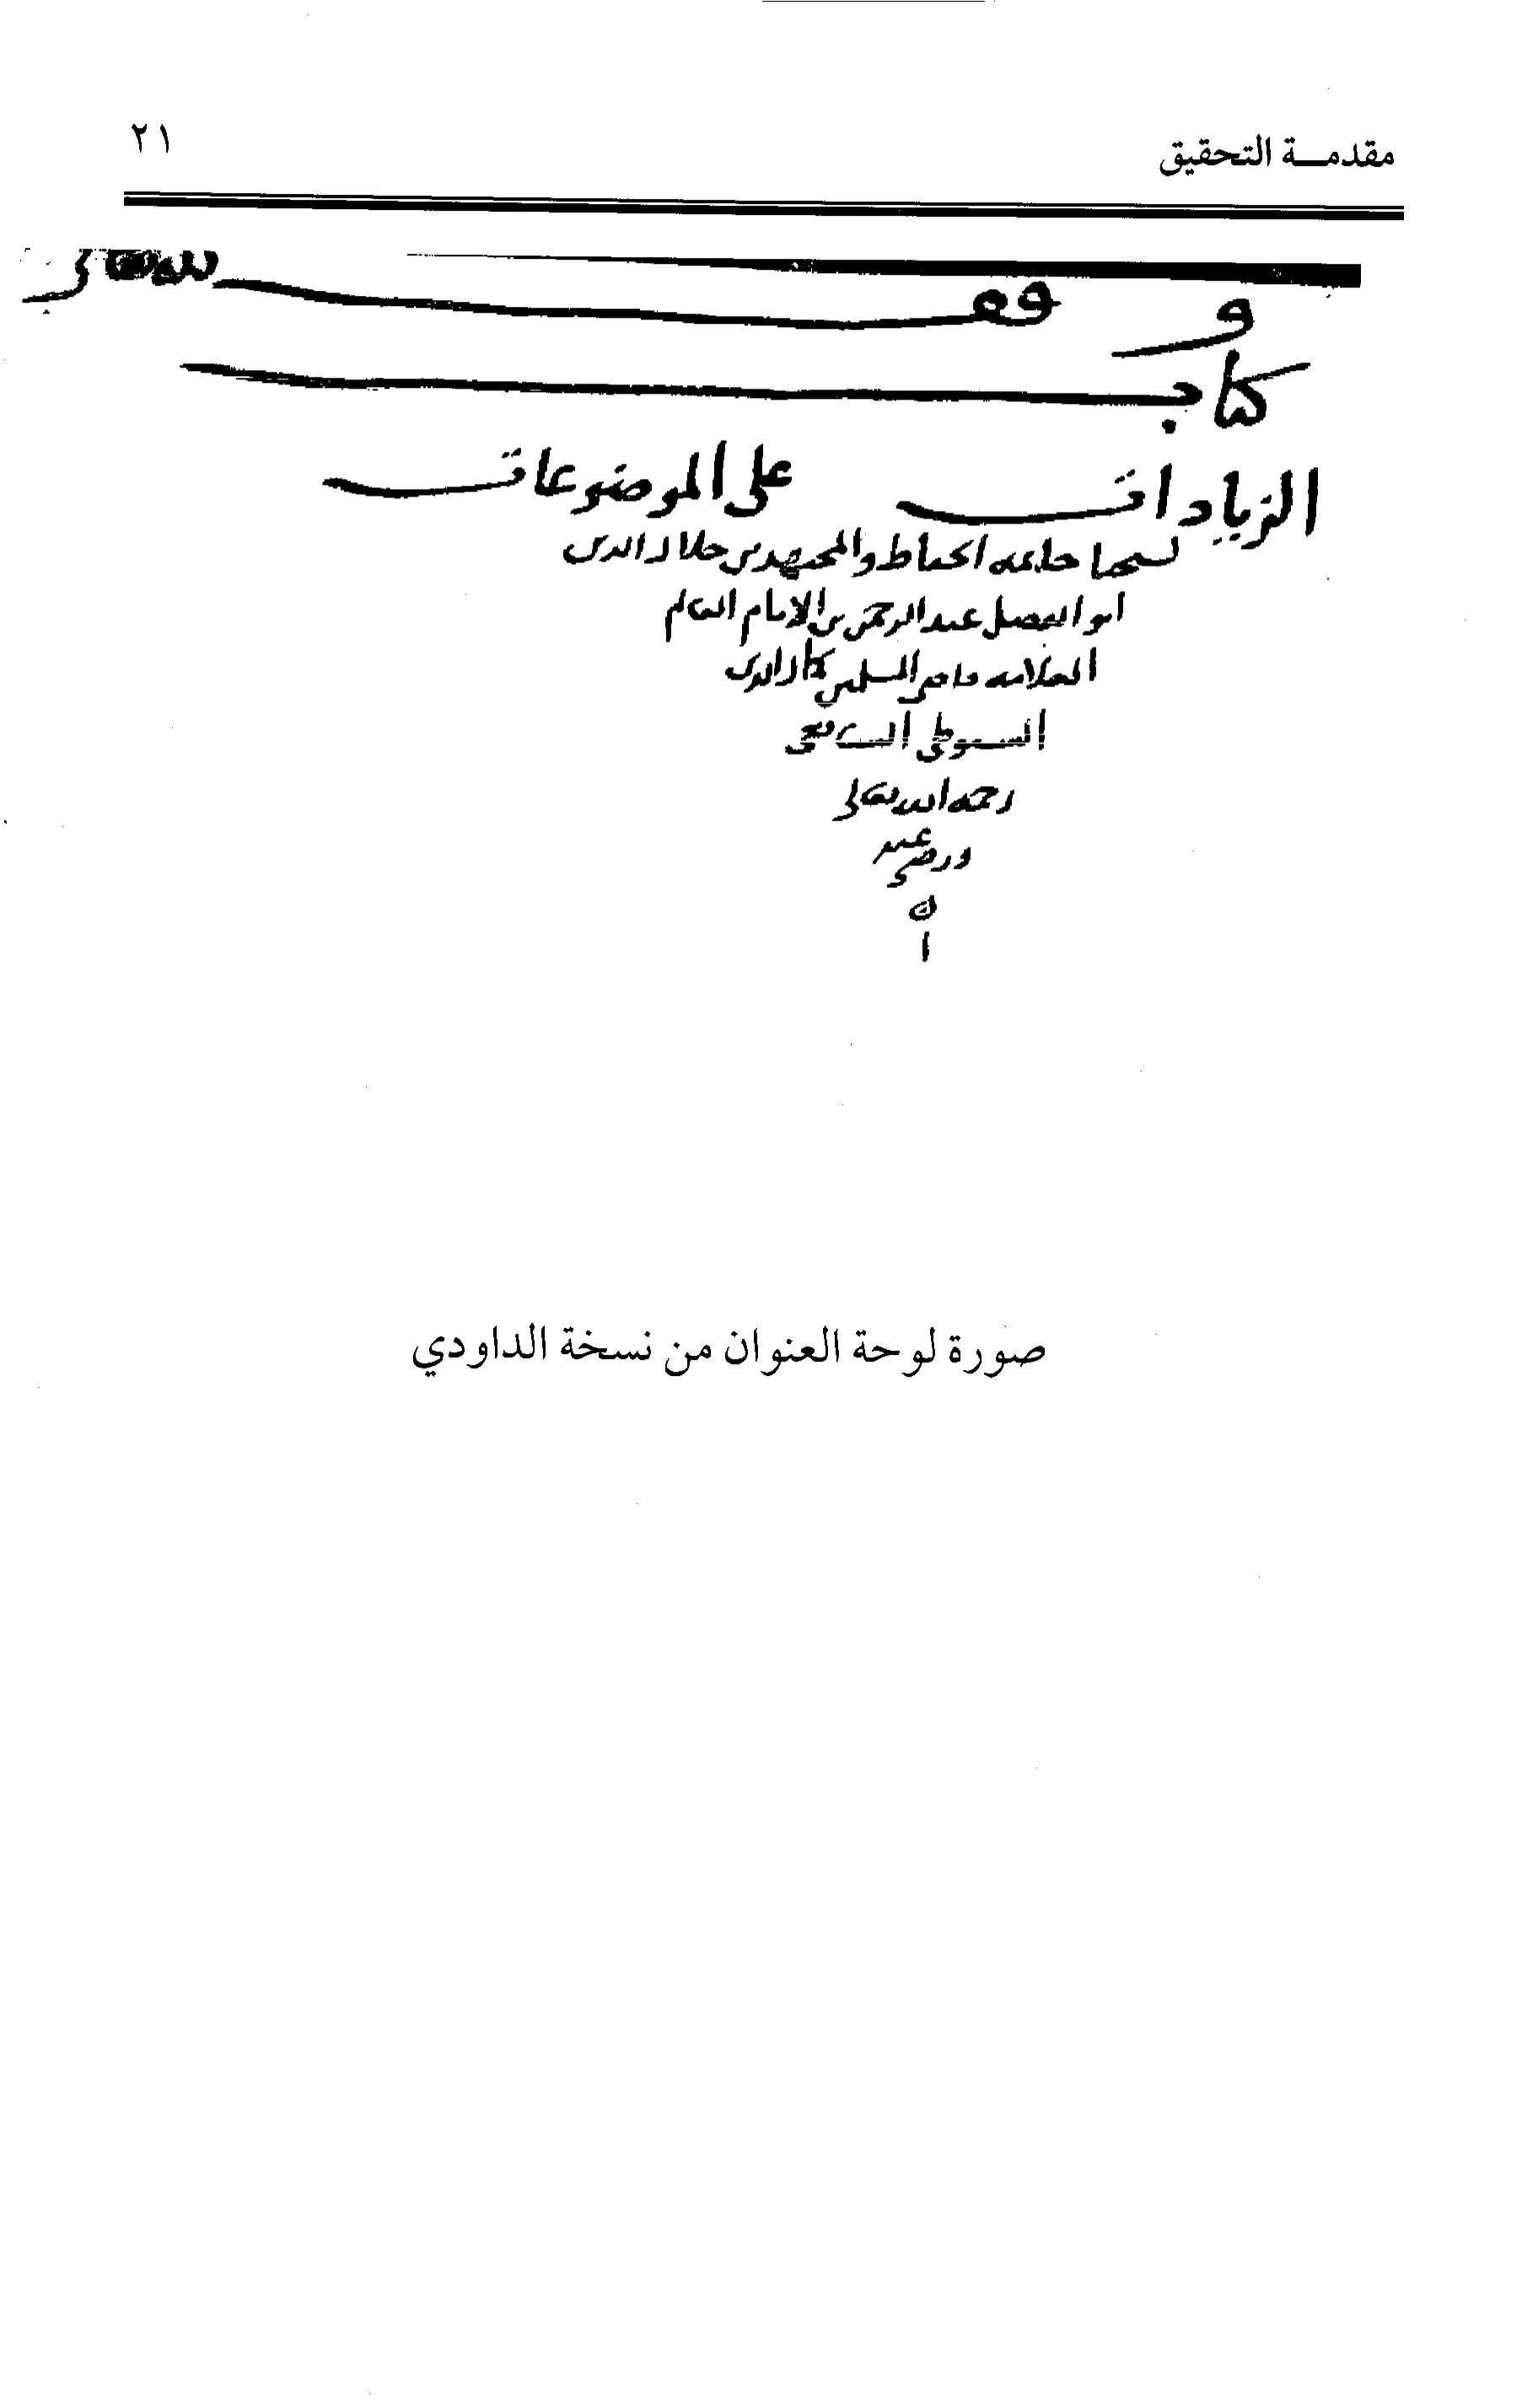 مقدمة التحقيق ٢١
وقف لله تعالى
كتاب
الزيادات على الموضوعات
لشيخنا خاتمة الحفاظ والمجتهدين جلال الدين
ابو الفضل عبد الرحمن بن الامام العالم
العلامة قاضي المسلمين كمال الدين
السيوطي الشافعي
رحمه الله تعالى
ورضي عنه
صورة لوحة العنوان من نسخة الداودي